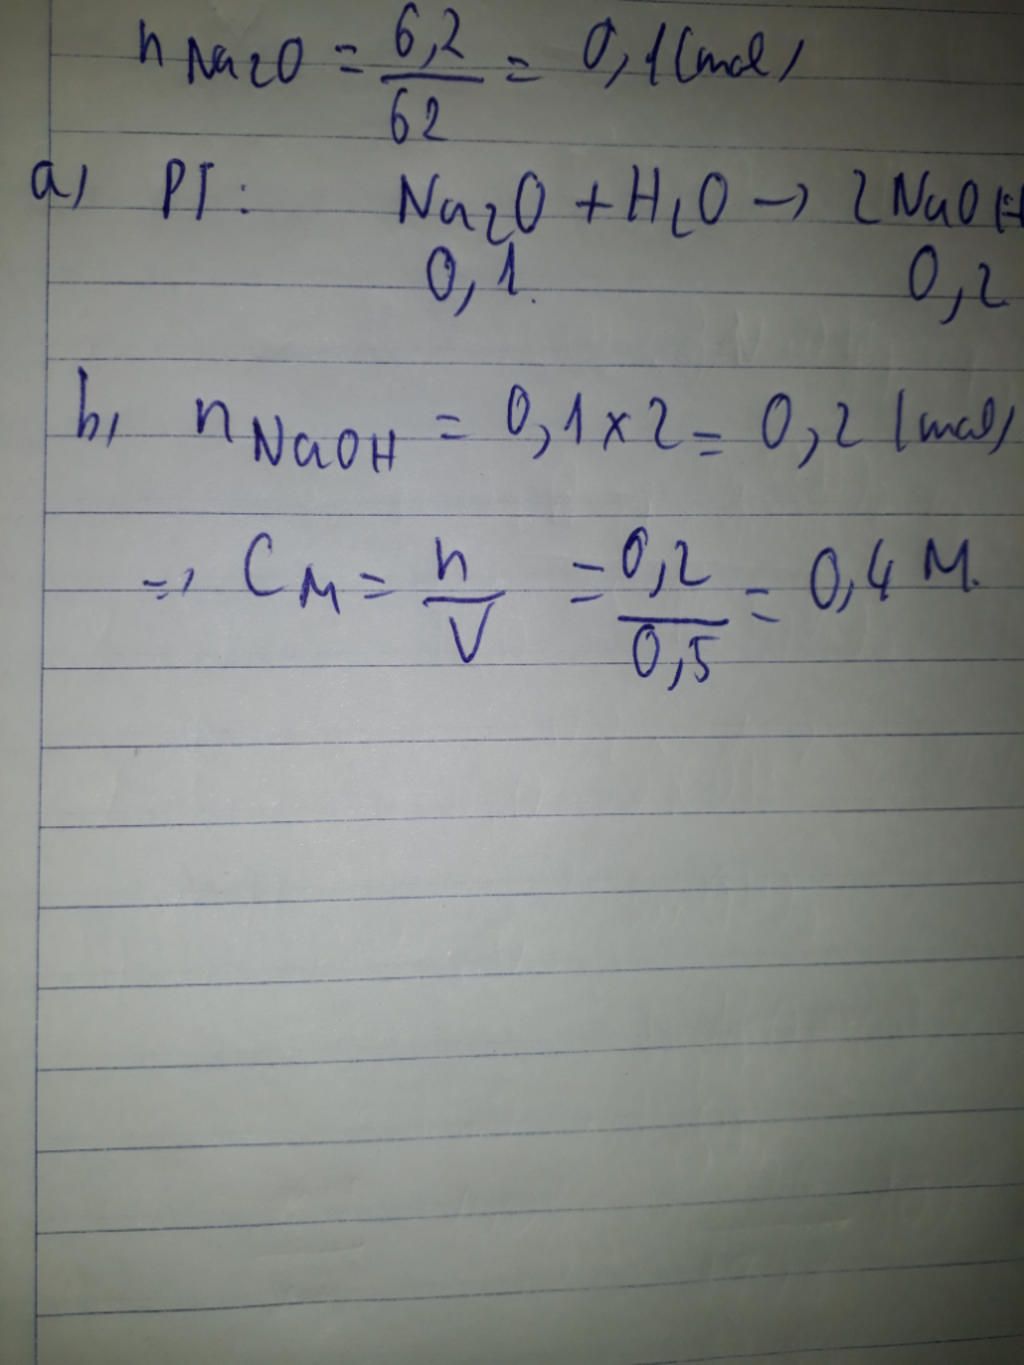 n Na2O = 6,2/62 = 0,1 (mol)
a, PT: Na2O + H2O → 2NaOH
0,1 0,2
b, n NaOH = 0,1 x 2 = 0,2 (mol)
=> CM = n/V = 0,2/0,5 = 0,4 M.